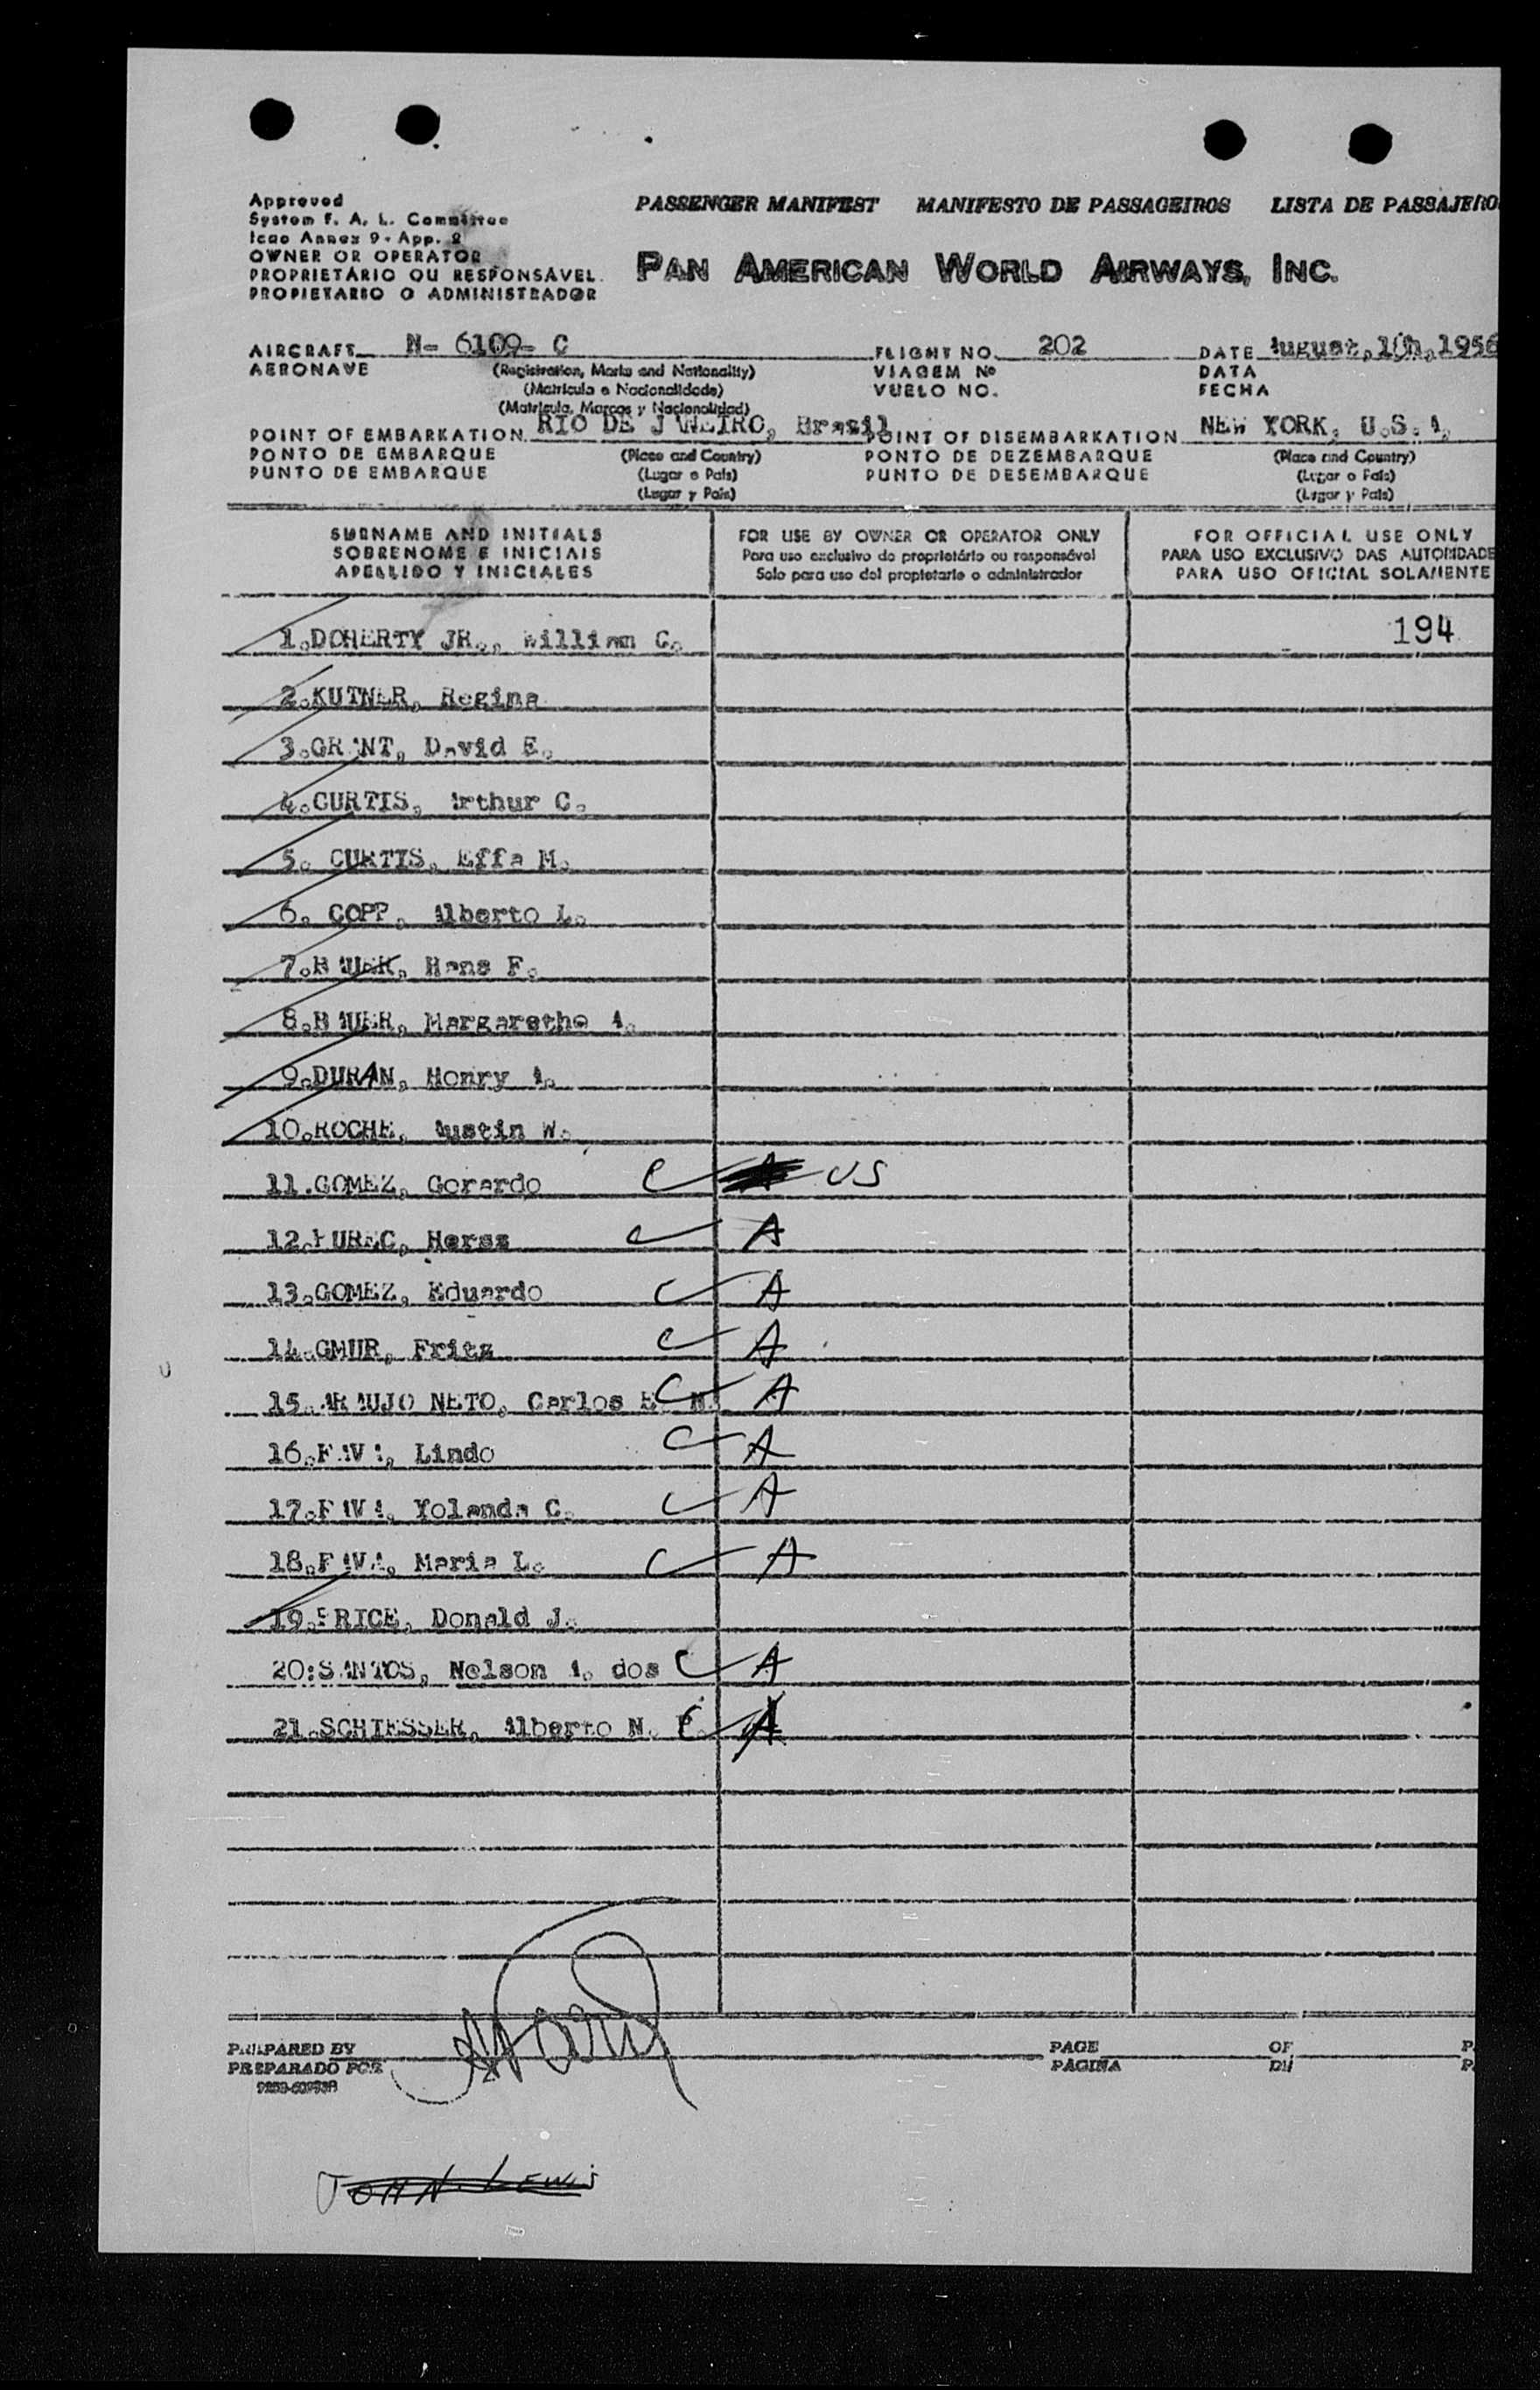 PASSENGER MANIFEST MANIFESTO DE PASSAGEIROS LISTA DE PASSAJERO
Approved
System F. A. L. Committee
Icao Annex 9 - App. 2
OWNER OR OPERATOR
PROPRIETÁRIO OU RESPONSÁVEL
PROPIETARIO O ADMINISTRADOR
PAN AMERICAN WORLD AIRWAYS, INC.
AIRCRAFT N- 6109- C FLIGHT NO. 202 DATE August, 1956
AERONAVE (Registration, Marks and Nationality) VIAGEM Nº DATA
(Matrícula e Nacionalidade) VUELO NO. FECHA
(Matrícula, Marcas y Nacionalidad)
POINT OF EMBARKATION RIO DE JANEIRO, Brasil POINT OF DISEMBARKATION NEW YORK, U.S.A.
PONTO DE EMBARQUE (Place and Country) PONTO DE DEZEMBARQUE (Place and Country)
PUNTO DE EMBARQUE (Lugar e País) PUNTO DE DESEMBARQUE (Lugar o País)
(Lugar y País) (Lugar y País)
SURNAME AND INITIALS FOR USE BY OWNER OR OPERATOR ONLY FOR OFFICIAL USE ONLY
SOBRENOME E INICIAIS Para uso exclusivo do proprietário ou responsável PARA USO EXCLUSIVO DAS AUTORIDADE
APELLIDO Y INICIALES Solo para uso del propietario o administrador PARA USO OFICIAL SOLAMENTE
1.DOHERTY JR., William C. 194
2.KUTNER, Regina
3.GRANT, David E.
4.CURTIS, Arthur C.
5. CURTIS, Effa M.
6. COPP, Alberto L.
7.BAUER, Hans F.
8.BAUER, Margarethe A.
9.DURAN, Henry A.
10.ROCHE, Austin W.
11.GOMEZ, Gerardo C A US
12. Hersz C A
13.GOMEZ, Eduardo C A
14.GMUR, Fritz C A
15.ARAUJO NETO, Carlos E. C A
16.FAVA, Lindo C A
17.FAVA, Yolanda C. C A
18.FAVA, Maria L. C A
19.PRICE, Donald J.
20:SANTOS, Nelson A. dos C A
21.SCHIESSER, Alberto N. C A
PREPARED BY PAGE OF P
PREPARADO POR PAGINA DE P
JOHN LEWIS